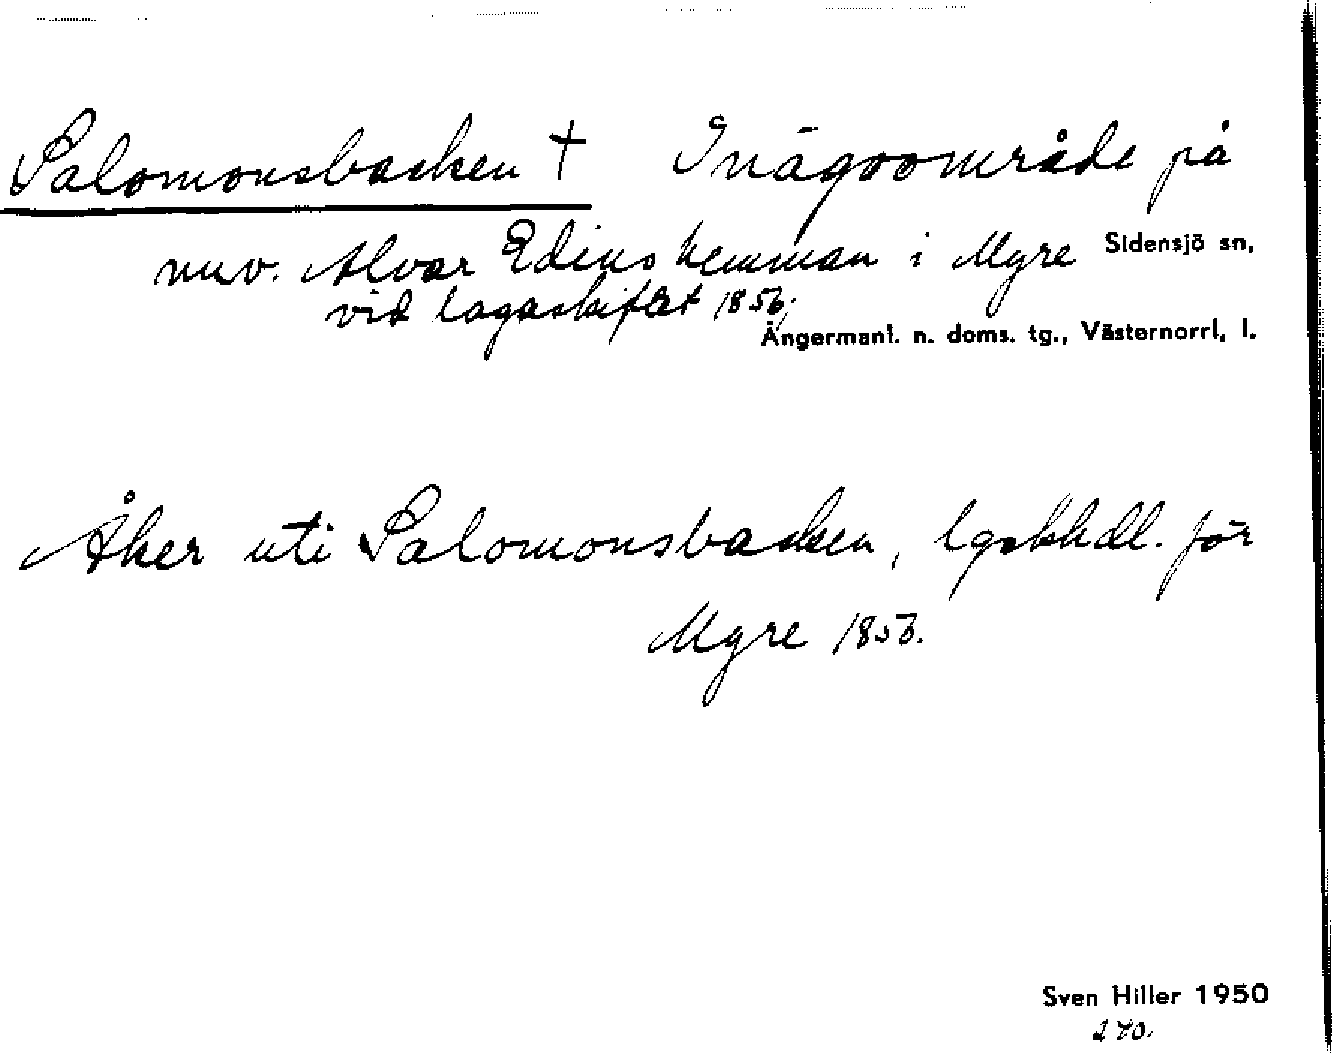 Salomonsbacken † Inägoområde på
nuv. Alvar Edins hemman i Myre Sidensjö sn,
vid lagaskiftet 1856;
Ångermanl. n. doms. tg., Västernorrl, l.
Åker uti Salomonsbacken, lgskhdl. för
Myre 1856.
Sven Hiller 1950
270.